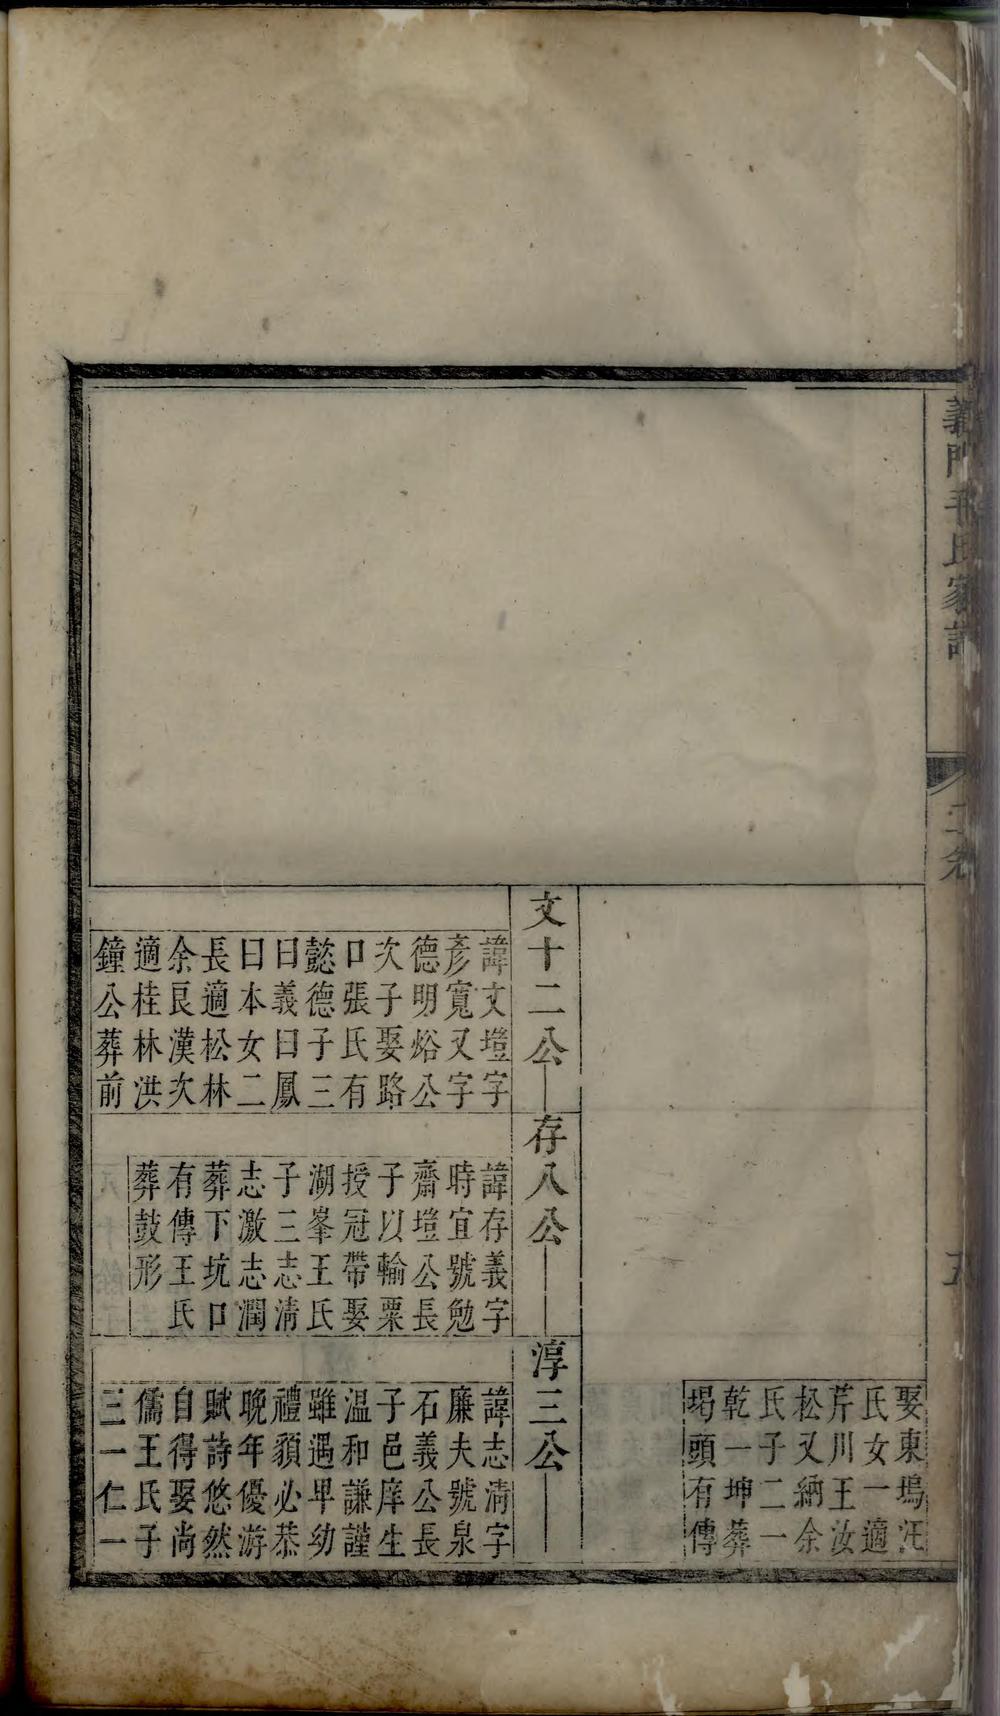 義門毛氏家
二卷
娶東塢汪
氏女一適
芹川王汝
松又納余
氏子二一
乾一坤葬
堨頭有傳
文十二公
諱文塏字
彥寬又字
德明峪公
次子娶路
口張氏有
懿德子三
曰義曰鳳
曰本女二
長適松林
余艮漢次
適桂林洪
鐘公葬前
存八公
諱存義字
時宜號勉
齋塏公長
子以輸粟
授冠帶娶
湖峯王氏
子三志清
志激志潤
葬下坑口
有傳王氏
葬鼓形
淳三公
諱志清字
廉夫號泉
石義公長
子邑庠生
温和謙謹
雖遇卑幼
禮貌必恭
晚年優游
賦詩悠然
自得娶尚
儒王氏子
三一仁一